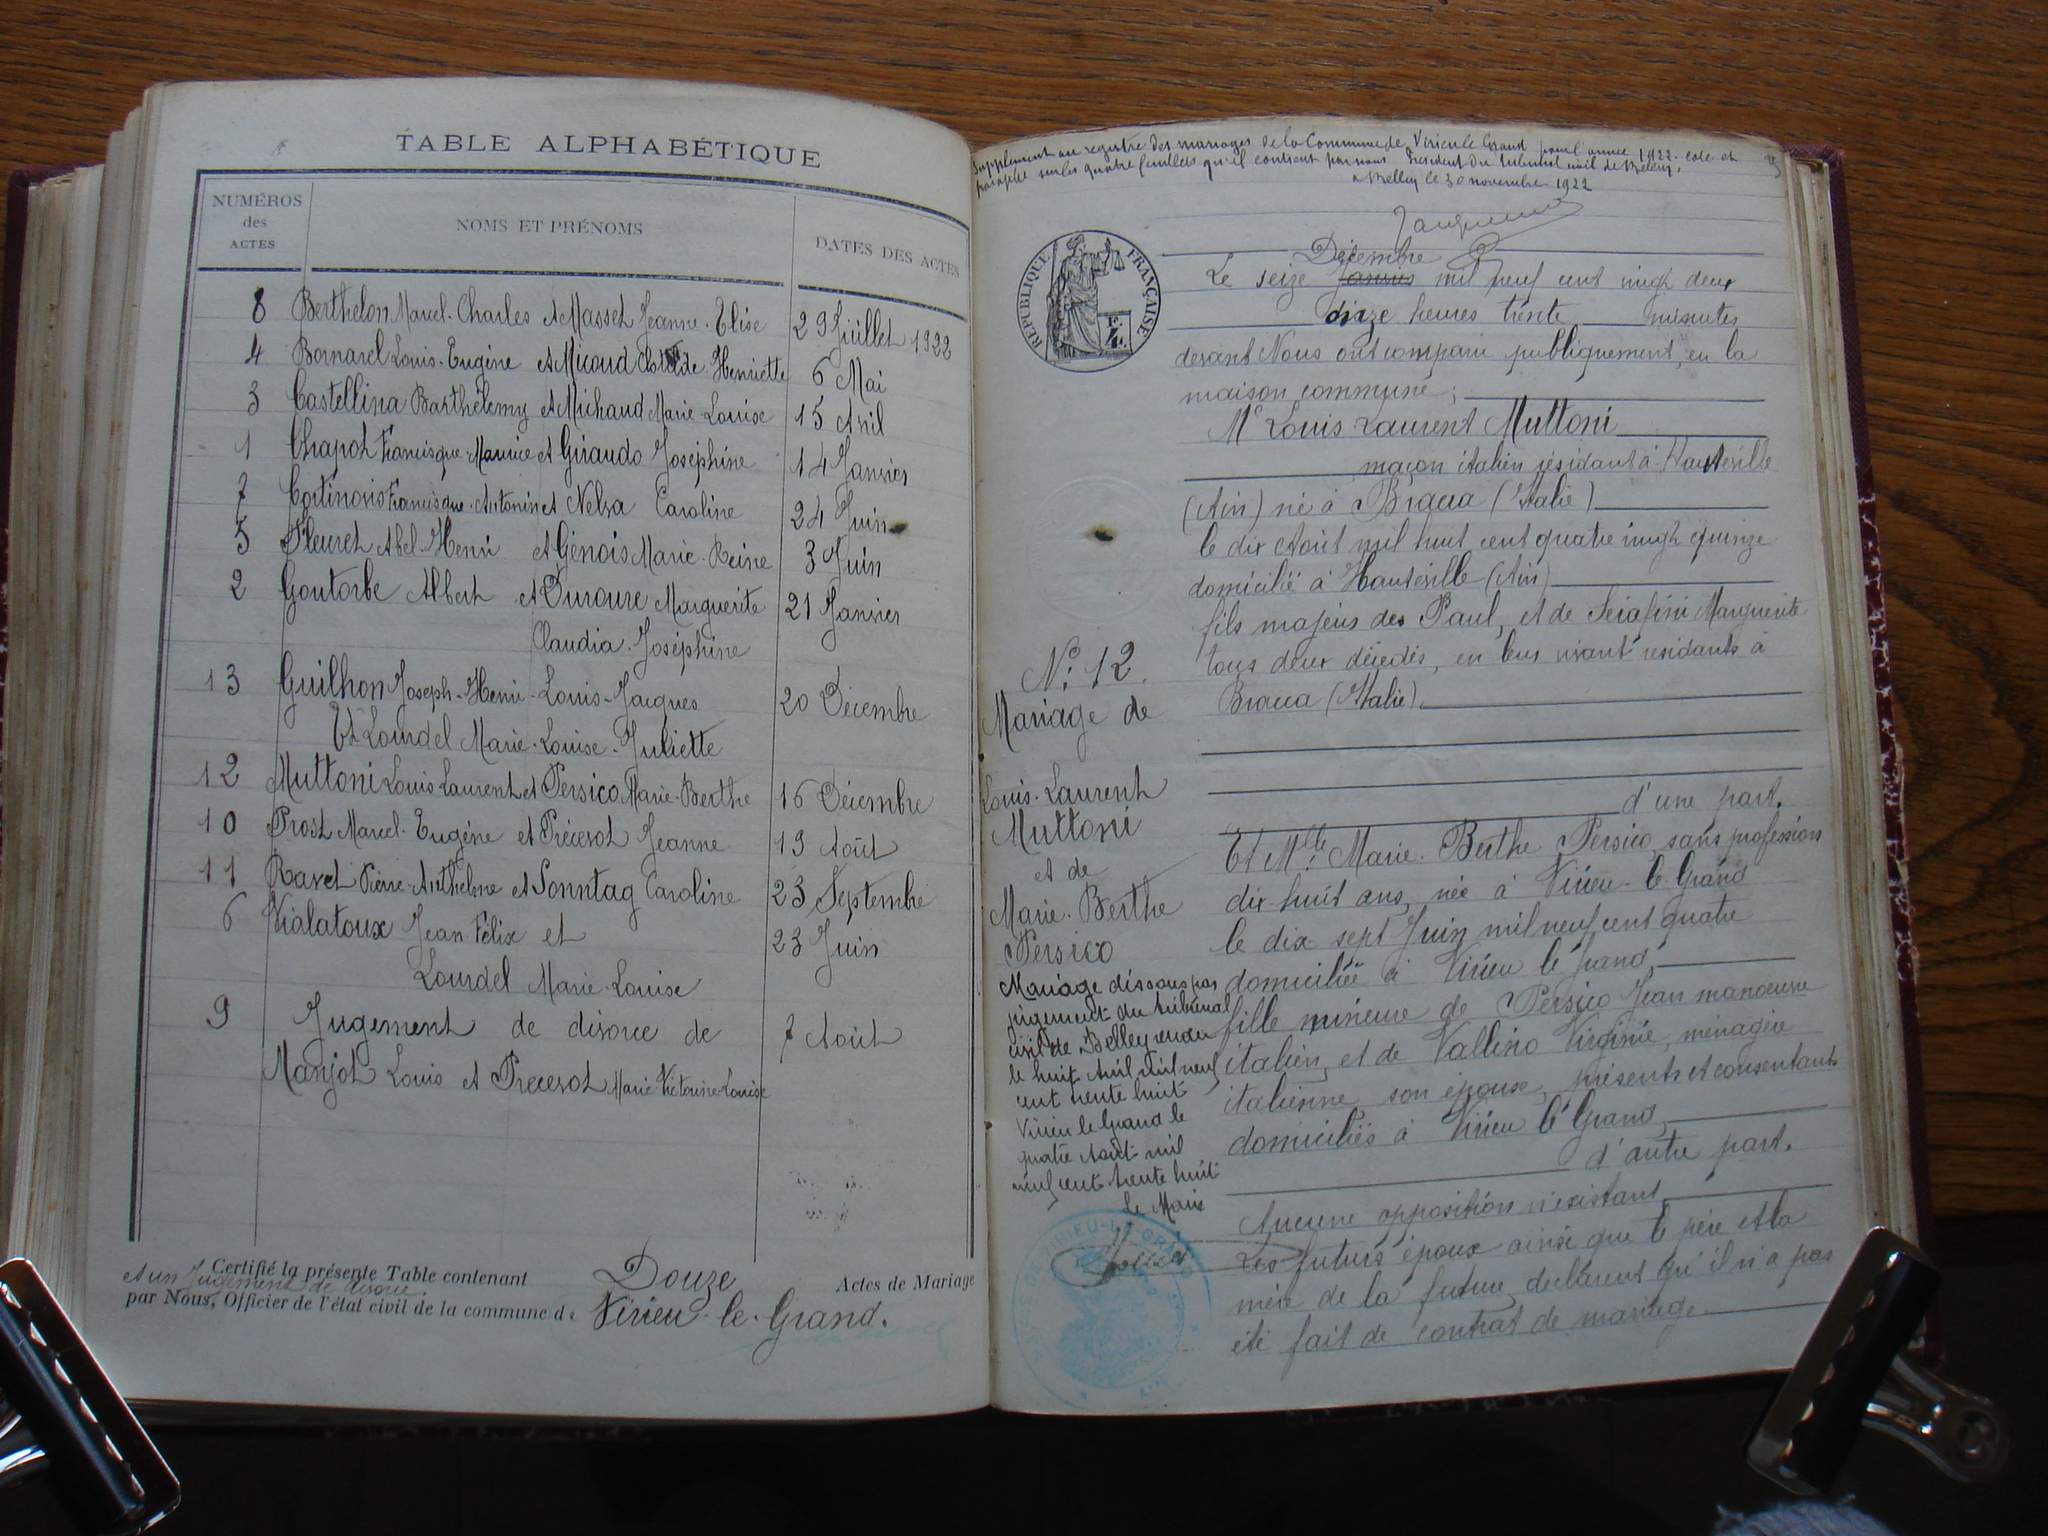 TABLE ALPHABÉTIQUE
NUMÉROS des ACTES
NOMS ET PRÉNOMS
DATES DES ACTES
8 Berthelon Marcel-Charles et Masset Jeanne-Elise 29 Juillet 1922
4 Bornarel Louis-Eugène et Micoud Henriette 6 Mai
3 Castellina Barthélemy et Michaud Marie Louise 15 Avril
1 Chapot Francisque Maurice et Giraudo Joséphine 14 Janvier
7 Cortinovis Francisque-Antonin et Nelva Caroline 24 Juin
5 Fleuret Abel-Henri et Génois Marie-Reine 3 Juin
2 Goutorbe Albert et Duroure Marguerite 21 Janvier
Claudia-Joséphine
13 Guilhon Joseph-Henri-Louis-Jacques 20 Décembre
Et Lourdel Marie-Louise-Juliette
12 Muttoni Louis Laurent et Persico Marie-Berthe 16 Décembre
10 Prost Marcel-Eugène et Précerot Jeanne 19 Août
11 Ravet Pierre-Anthelme et Sonntag Caroline 23 Septembre
6 Vialatoux Jean Félix et 23 Juin
Lourdel Marie-Louise
9 Jugement de divorce de 7 Août
Manjot Louis et Precerot Marie Victorine Louise
Certifié la présente Table contenant Douze Actes de Mariage
et un Jugement de divorce.
par Nous, Officier de l'état civil de la commune de Virieu-le-Grand.
Supplément au registre des mariages de la Commune de Virieu le Grand pour l'année 1922. coté et
paraphé sur les quatre feuillets qu'il contient par nous Président du tribunal civil de Belley,
à Belley le 30 novembre 1922
RÉPUBLIQUE FRANÇAISE
Décembre
Le seize Janvier mil neuf cent vingt deux
onze heures trente minutes
devant Nous ont comparu publiquement, en la
maison commune;
Mr Louis Laurent Muttoni
maçon italien résidant à Hauteville
(Ain) né à Bracca (Italie)
le dix Août mil huit cent quatre vingt quinze
domicilié à Hauteville (Ain)
fils majeur des Paul, et de Serafini Marguerite
tous deux décédés, en leur vivant résidants à
Bracca (Italie).
d'une part.
Et Mlle Marie-Berthe Persico sans profession
dix huit ans, née à Virieu-le-Grand
le dix sept Juin mil neuf cent quatre
domiciliée à Virieu le Grand,
fille mineure de Persico Jean manoeuvre
italien, et de Vallino Virginie, ménagère
italienne son époux, présents et consentants
domiciliés à Virieu le Grand,
d'autre part.
Aucune opposition n'existant,
Les futurs époux ainsi que le père et la
mère de la future, déclarent qu'il n'a pas
été fait de contrat de mariage.
No. 12.
Mariage de
Louis-Laurent
Muttoni
et de
Marie-Berthe
Persico
Mariage dissous par
jugement du tribunal
civil de Belley rendu
le huit Avril mil neuf
cent trente huit
Virieu le Grand le
quatre Août mil
neuf cent trente huit
Le Maire
VIRIEU-LE-GRAND